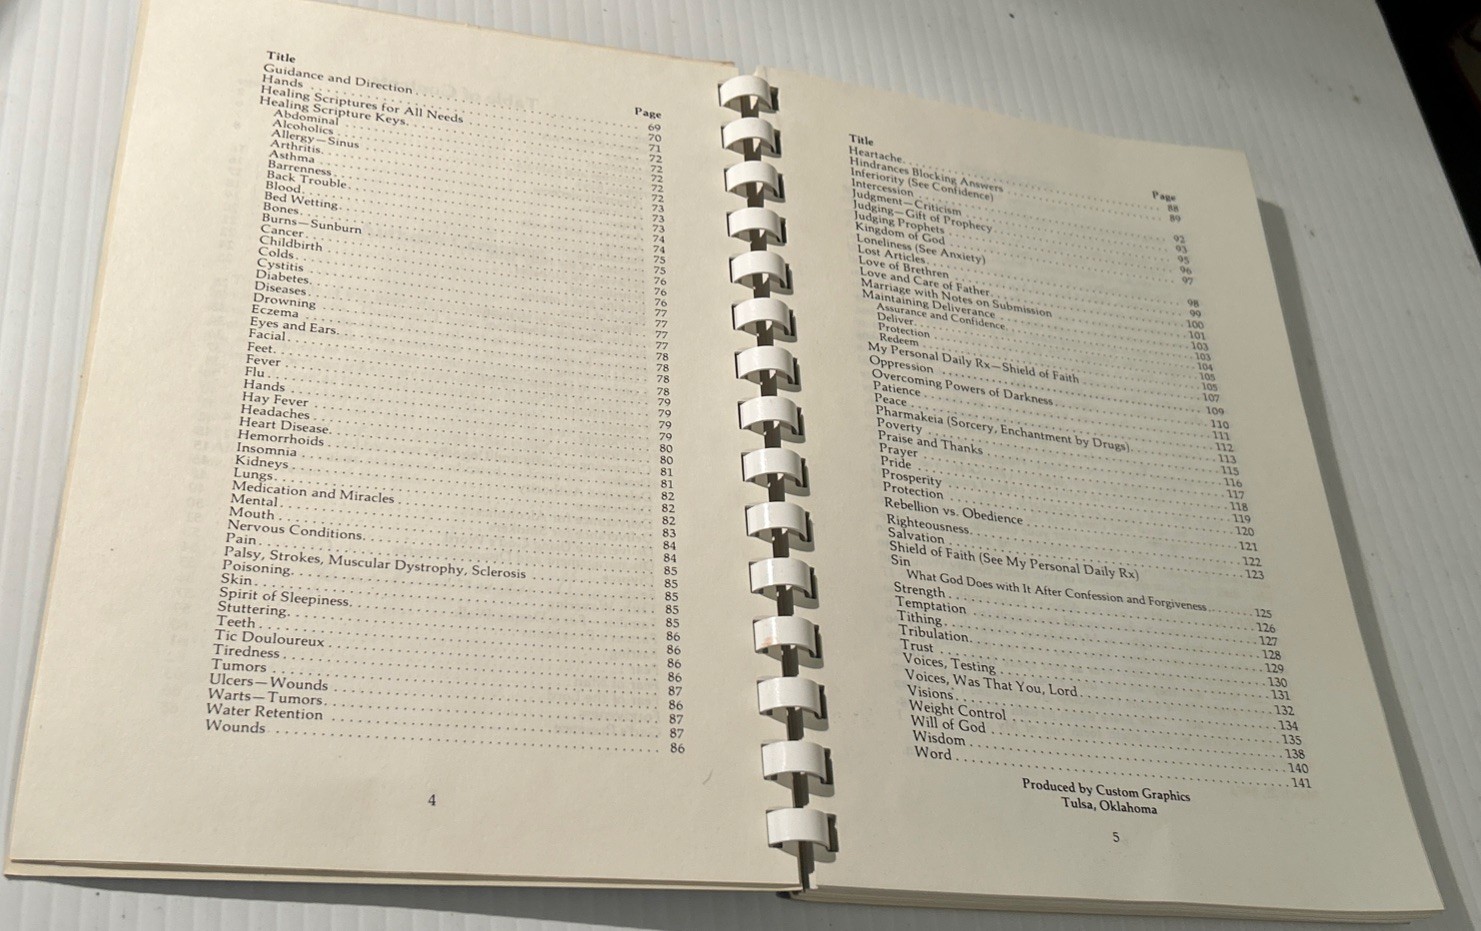 Title Page
Guidance and Direction 69
Hands 70
Healing Scriptures for All Needs 71
Healing Scripture Keys 72
Abdominal 72
Alcoholics 72
Allergy—Sinus 72
Arthritis 72
Asthma 73
Barrenness 73
Back Trouble 73
Blood 74
Bed Wetting 74
Bones 75
Burns—Sunburn 75
Cancer 76
Childbirth 76
Colds 76
Cystitis 77
Diabetes 77
Diseases 77
Drowning 77
Eczema 78
Eyes and Ears 78
Facial 78
Feet 78
Fever 79
Flu 79
Hands 79
Hay Fever 79
Headaches 80
Heart Disease 80
Hemorrhoids 81
Insomnia 81
Kidneys 82
Lungs 82
Medication and Miracles 82
Mental 83
Mouth 84
Nervous Conditions 84
Pain 85
Palsy, Strokes, Muscular Dystrophy, Sclerosis 85
Poisoning 85
Skin 85
Spirit of Sleepiness 85
Stuttering 86
Teeth 86
Tic Douloureux 86
Tiredness 86
Tumors 87
Ulcers—Wounds 86
Warts—Tumors 87
Water Retention 87
Wounds 86
4
Title Page
Heartache 88
Hindrances Blocking Answers 89
Inferiority (See Confidence)
Intercession 92
Judgment—Criticism 93
Judging—Gift of Prophecy 95
Judging Prophets 96
Kingdom of God 97
Loneliness (See Anxiety)
Lost Articles 98
Love of Brethren 99
Love and Care of Father 100
Marriage with Notes on Submission 101
Maintaining Deliverance 103
Assurance and Confidence 103
Deliver 104
Protection 105
Redeem 105
My Personal Daily Rx—Shield of Faith 107
Oppression 109
Overcoming Powers of Darkness 110
Patience 111
Peace 112
Pharmakeia (Sorcery, Enchantment by Drugs) 113
Poverty 115
Praise and Thanks 116
Prayer 117
Pride 118
Prosperity 119
Protection 120
Rebellion vs. Obedience 121
Righteousness 122
Salvation 123
Shield of Faith (See My Personal Daily Rx)
Sin
What God Does with It After Confession and Forgiveness 125
Strength 126
Temptation 127
Tithing 128
Tribulation 129
Trust 130
Voices, Testing 131
Voices, Was That You, Lord 132
Visions 134
Weight Control 135
Will of God 138
Wisdom 140
Word 141
Produced by Custom Graphics
Tulsa, Oklahoma
5